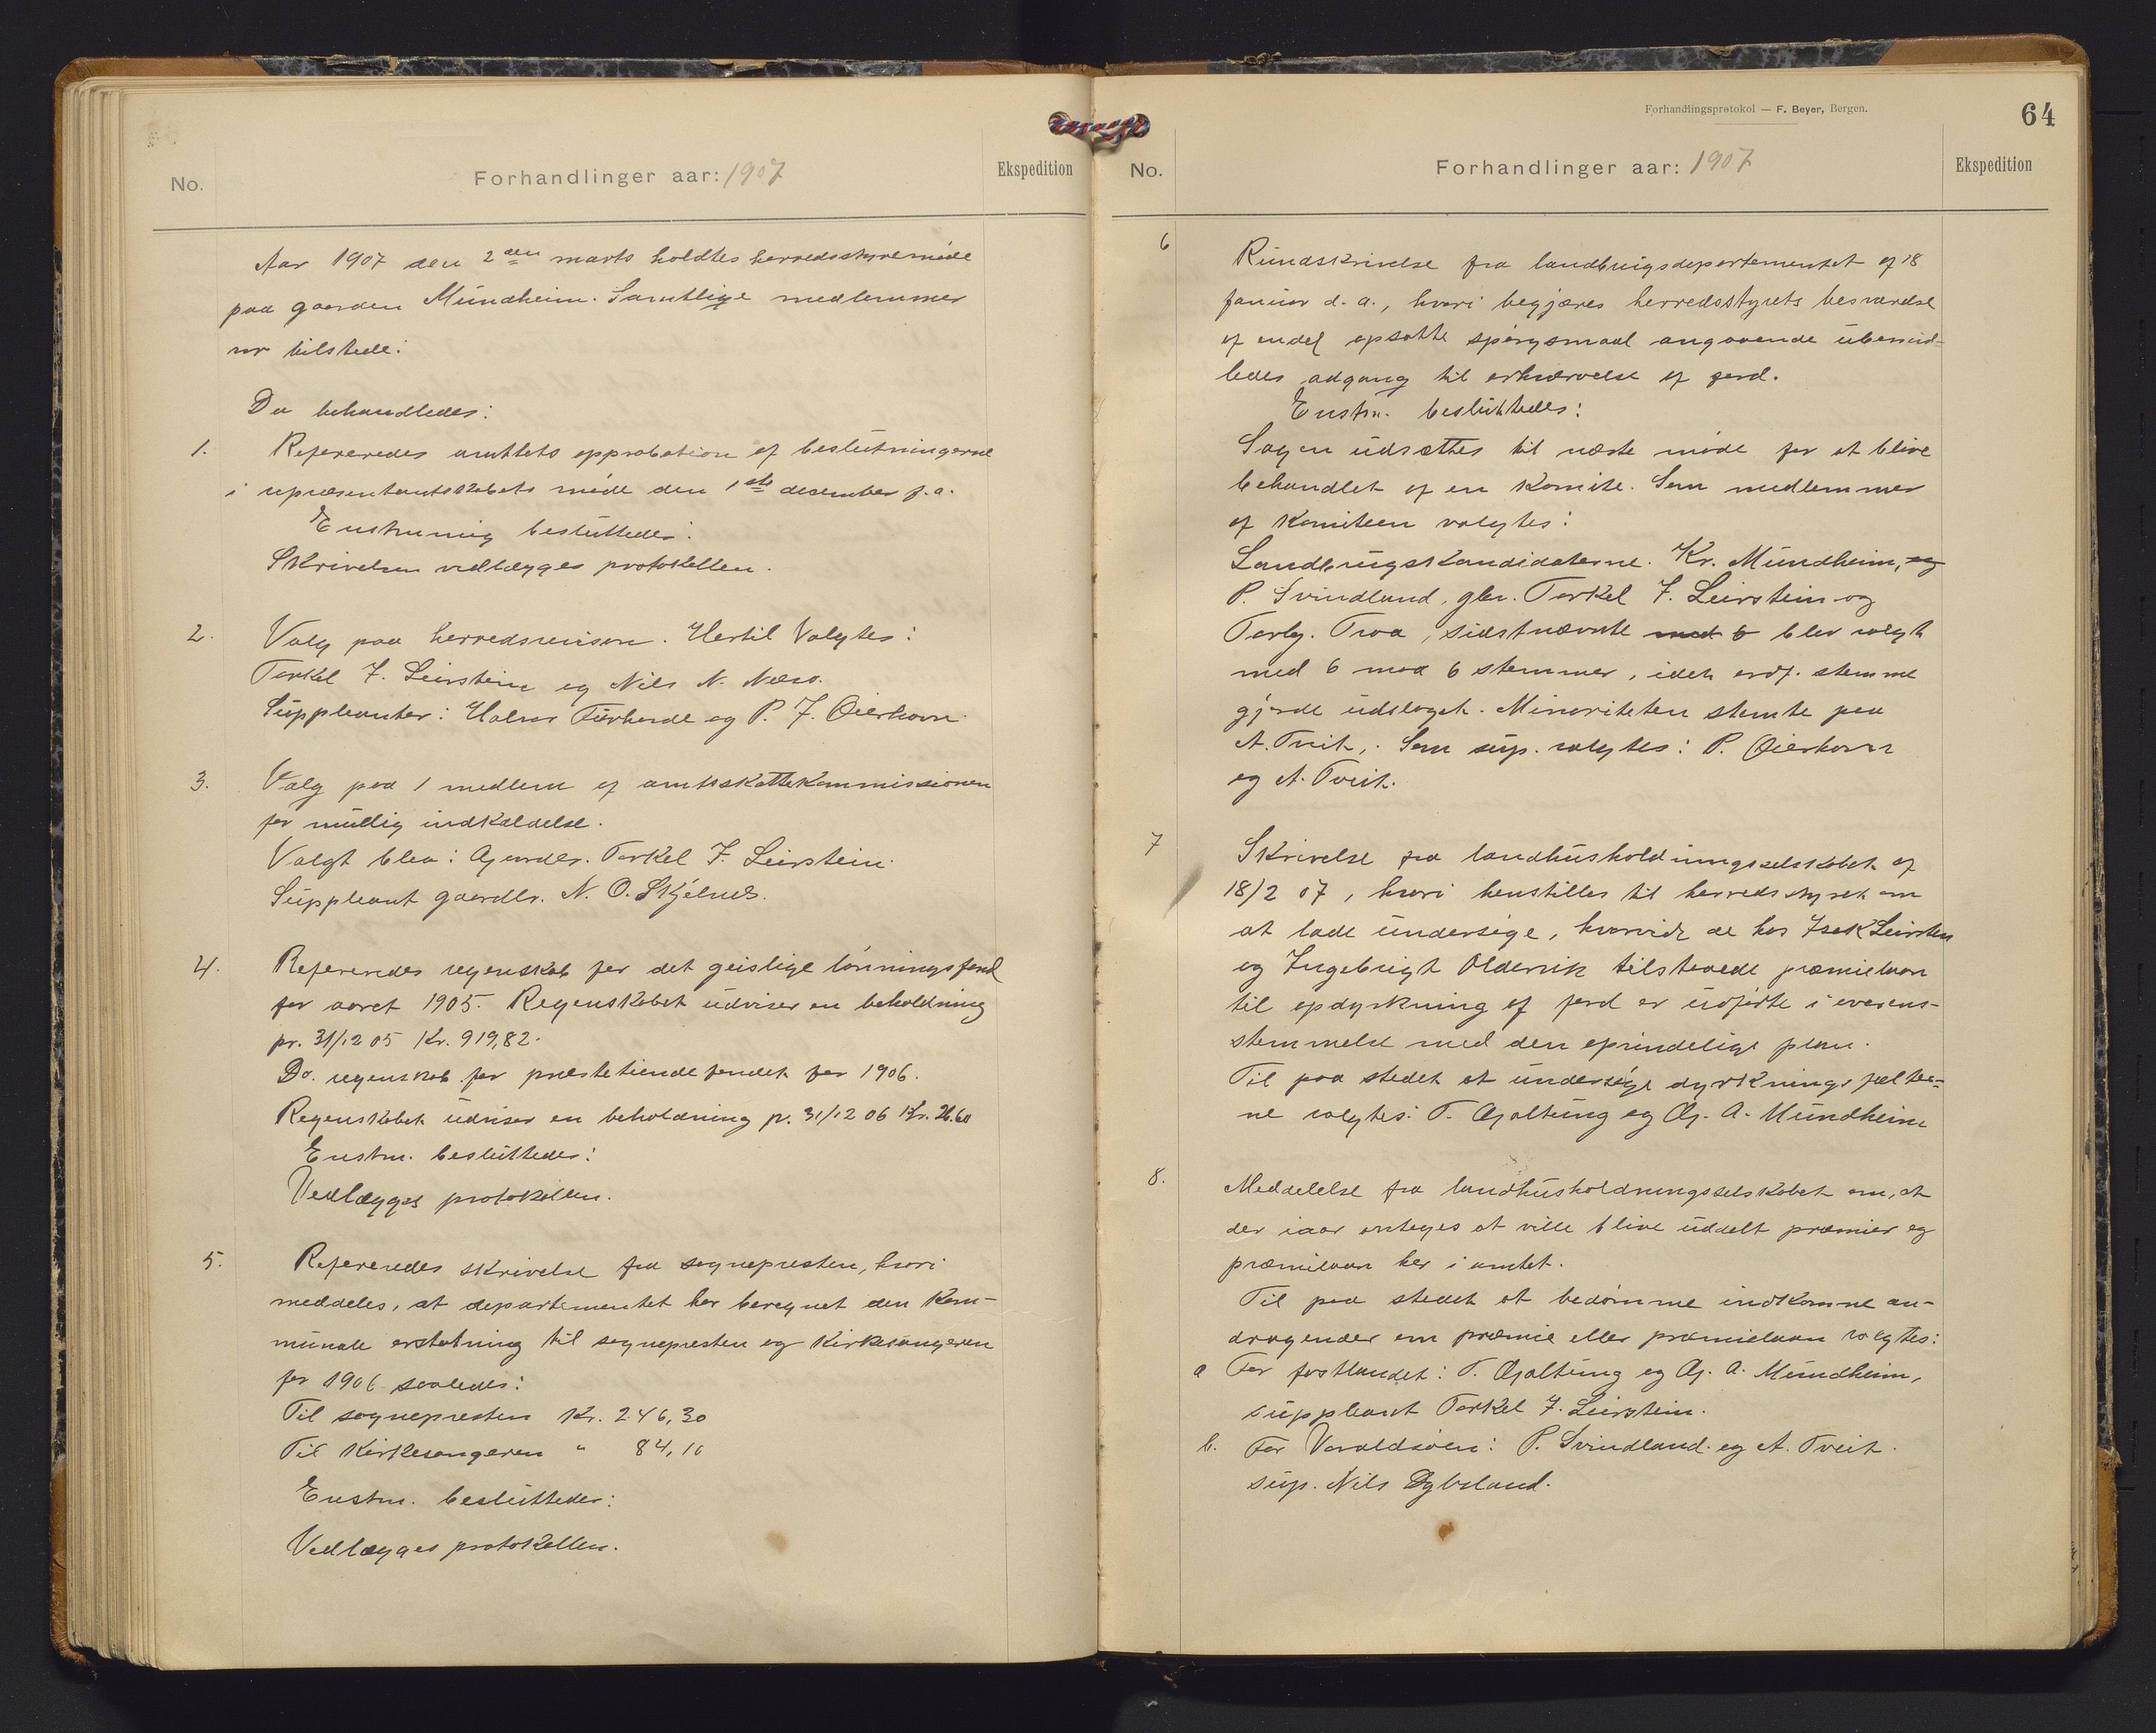 No.
Forhandlinger aar: 1907
Ekspedition
Aar 1907 den 2den marts holdtes herredsstyremøde
paa gaarden Mundheim. Samtlige medlemmer
var tilstede.
Da behandledes:
1. Refereredes amtets approbation af beslutningerne
i repræsentantskabets møde den 1ste december f.a.
Enstemmig besluttedes:
Skrivelsen vedlægges protokollen.
2. Valg paa herredsrevisorer. Hertil valgtes:
Torkel J. Leirstein og Nils N. Næss.
Suppleanter: Halvor Furhovde og P. J. Øierhavn.
3. Valg paa 1 medlem af amtsskattekommissionen
for mulig indkaldelse.
Valgt blev: Gaardbr. Torkel J. Leirstein.
Suppleant gaardbr. N. O. Skjelnes.
4. Refereredes regnskab for det geistlige lønningsfond
for aaret 1905. Regnskabet udviser en beholdning
pr. 31/12 05 Kr. 919,82.
Do. regnskab for præstetiendefondet for 1906.
Regnskabet udviser en beholdning pr. 31/12 06 Kr. 26.60
Enstm. besluttedes:
Vedlægges protokollen.
5. Refereredes skrivelse fra sognepresten, hvori
meddeles, at departementet har beregnet den kom-
munale erstatning til sognepresten og kirkesangeren
for 1906 saaledes:
Til sognepresten Kr. 246,30
Til Kirkesangeren " 84,10
Enstm. besluttedes:
Vedlægges protokollen.
Forhandlingsprotokol — F. Beyer, Bergen.
64
No.
Forhandlinger aar: 1907
Ekspedition
6 Rundskrivelse fra landbrugsdepartementet af 18
januar d.a., hvori begjæres herredsstyrets besvarelse
af endel opsatte spørgsmaal angaaende ubemid-
ledes adgang til erhvervelse af jord.
Enstm. besluttedes:
Sagen udsættes til næste møde for at blive
behandlet af en komite. Som medlemmer
af komiteen valgtes:
Landbrugskandidaterne. Kr. Mundheim, og
P. Svindland, gbr. Torkel J. Leirstein og
Torbj. Tvea, sidstnævnte med 6 blev valgt
med 6 mod 6 stemmer, idet ordf. stemme
gjorde udslaget. Minoriteten stemte paa
A. Tveit,. Som sup. valgtes: P. Øierhavn
og A. Tveit.
7 Skrivelse fra landhusholdningsselskabet af
18/2 07, hvori henstilles til herredsstyret om
at lade undersøge, hvorvidt de hos Isak Leirstein
og Ingebrigt Oldervik tilstaaede præmielaan
til opdyrkning af jord er udførte i overens-
stemmelse med den oprindelige plan.
Til paa stedet at undersøge dyrkningsfælter-
ne valgtes: T. Gjaltung og Gj. A. Mundheim
8. Meddelelse fra landhusholdningsselskabet om, at
der iaar antages at ville blive uddelt præmier og
præmielaan her i amtet.
Til paa stedet at bedømme indkomne an-
dragender om præmie eller præmielaan valgtes:
a For fastlandet: T. Gjaltung og Gj. A. Mundheim,
suppleant Torkel J. Leirstein.
b. For Varaldsøen: P. Svindland og A. Tveit.
sup. Nils Dybsland.